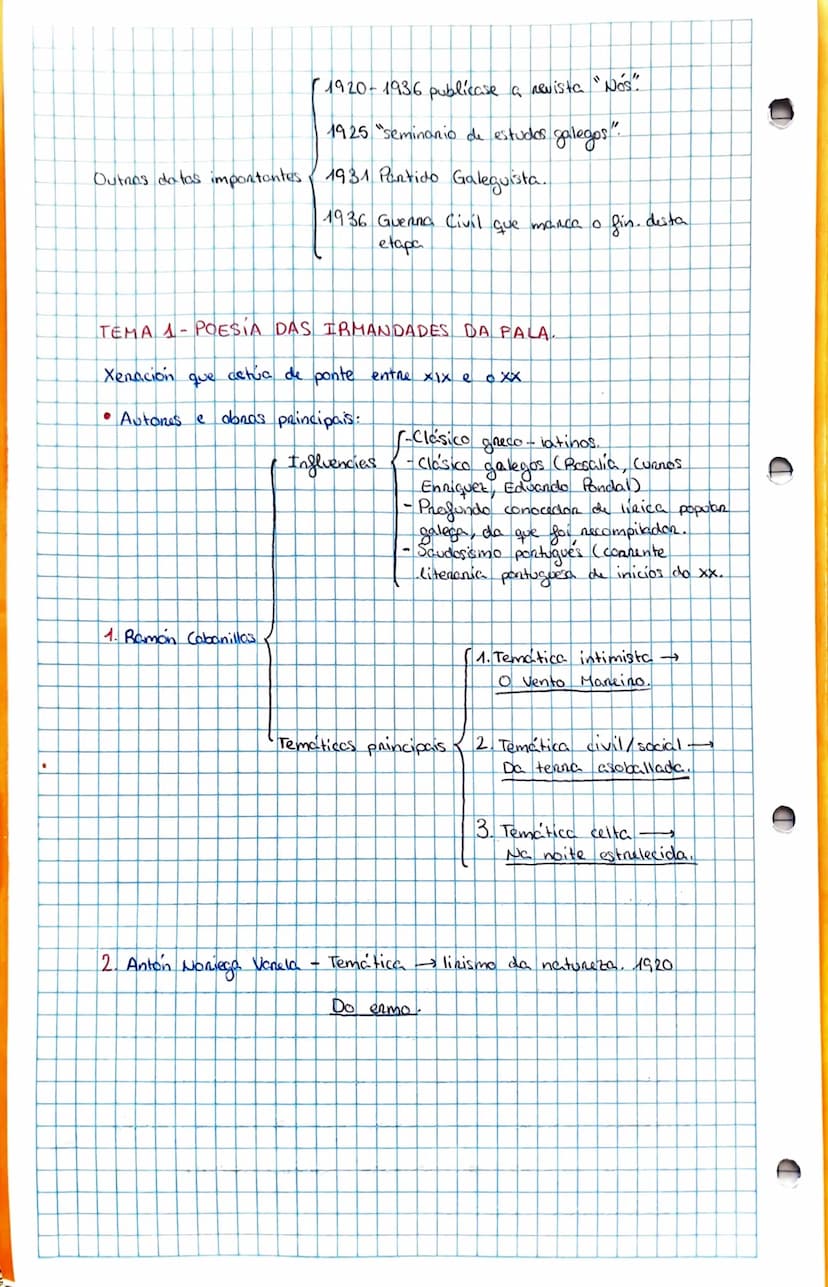 1920-1936 publícase a revista "Nós".
1925 "seminario de estudos galegos".
Outras datas importantes
1931 Partido Galeguista.
1936 Guerra Civil que marca o fin. desta
etapa
TEMA 1- POESÍA DAS IRMANDADES DA FALA.
Xeración que actúa de ponte entre XIX e o XX
• Autores e obras principais:
-Clásico greco-latinos.
Influencias
-Clásico galegos (Rosalía, Curros
Enríquez, Eduardo Pondal)
- Profundo conocedor de lírica popular
galega, da que foi recompilador.
- Saudosismo portugués (corrente
literaria portuguesa de inicios do XX.
1. Ramón Cabanillas
1. Temática intimista →
O Vento Mareiro.
Temáticas principais
2. Temática civil/social →
Da terra asoballada.
3. Temática celta →
Na noite estrelecida.
2. Antón Noriega Varela - Temática → lirismo da natureza. 1920
Do ermo.